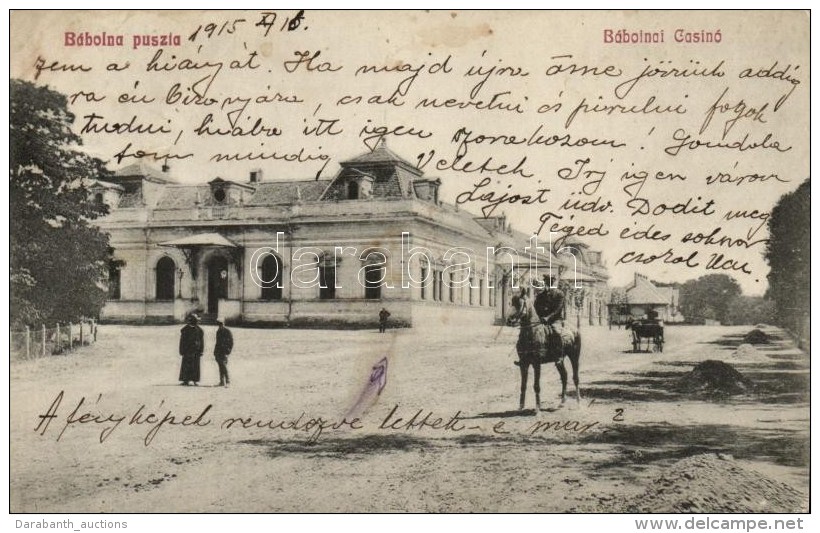 Bábolna puszta
1915 XI 15
Bábolnai Casinó
zem a hiányát. Ha majd újra öme jövünk addig
ra én Bizonyára, csak nevetni és pirulni fogok
tudni, hiába itt igen szorakozom! Gondola
tom mindig Veletek. Irj igen várom
Lajost üdv. Dodit meg
Téged édes soknor
csókol Uai.
darabanth.com
A fényképek rendezve lettek-e már?
Darabanth_auctions
http://www.delcampe.net